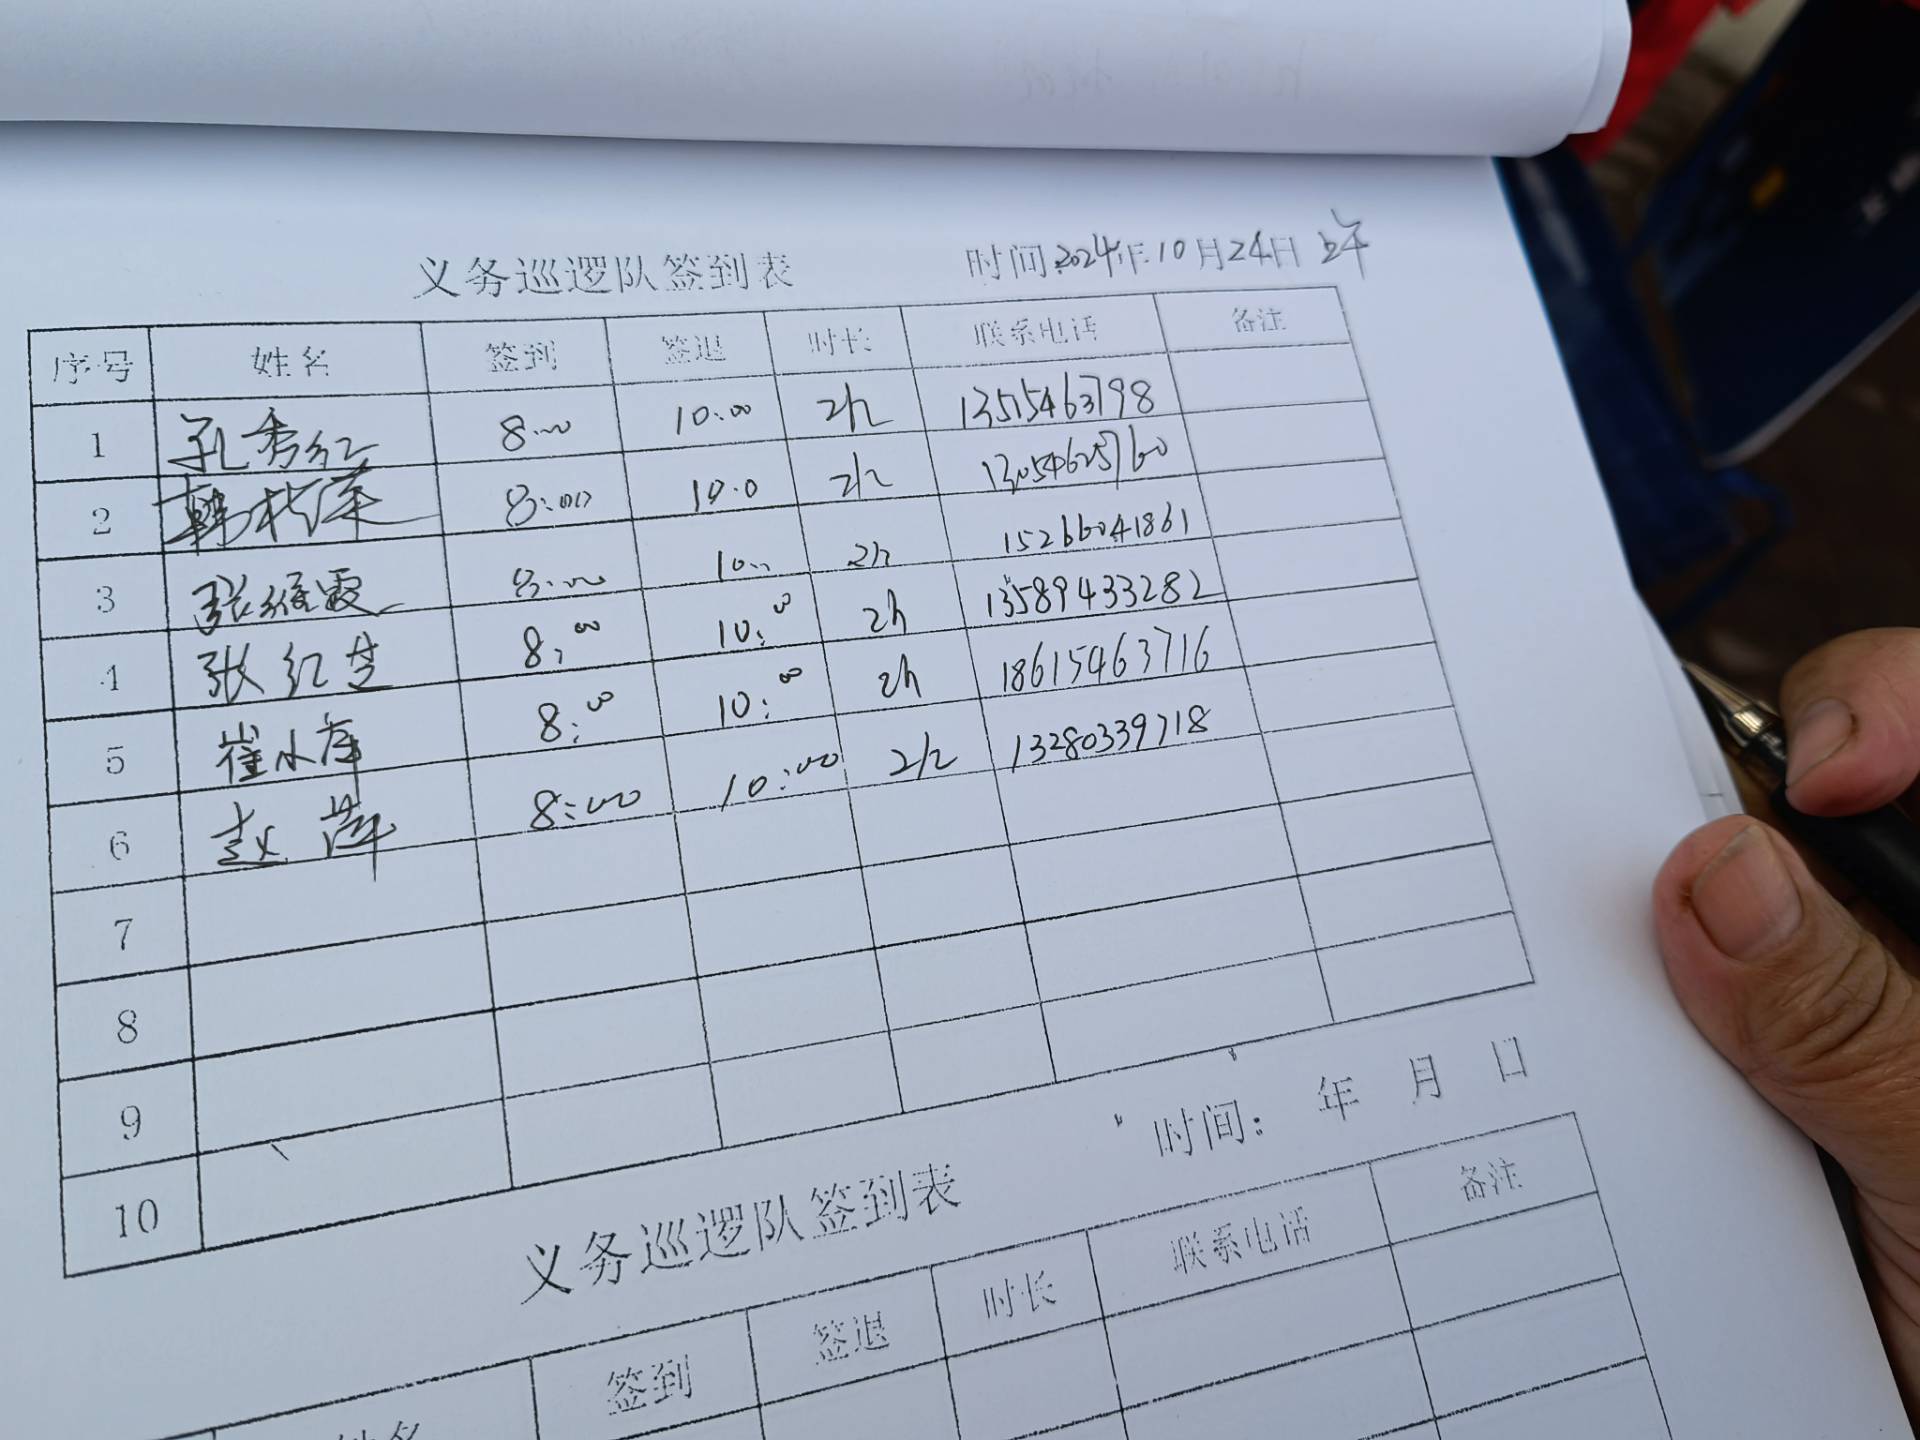 义务巡逻队签到表 时间2024年10月24日 上午
序号 姓名 签到 签退 时长 联系电话 备注
1 孔秀红 8:00 10:00 2h 13515463798
2 韩 8:00 10:0 2h 13054625760
3 张维霞 8:00 10:.. 2h 15266041861
4 张红芝 8:00 10:00 2h 13589433282
5 崔小 8:00 10:00 2h 18615463716
6 赵萍 8:00 10:00 2h 13280339718
7
8
9
10
义务巡逻队签到表 时间: 年 月 日
姓名 签到 签退 时长 联系电话 备注